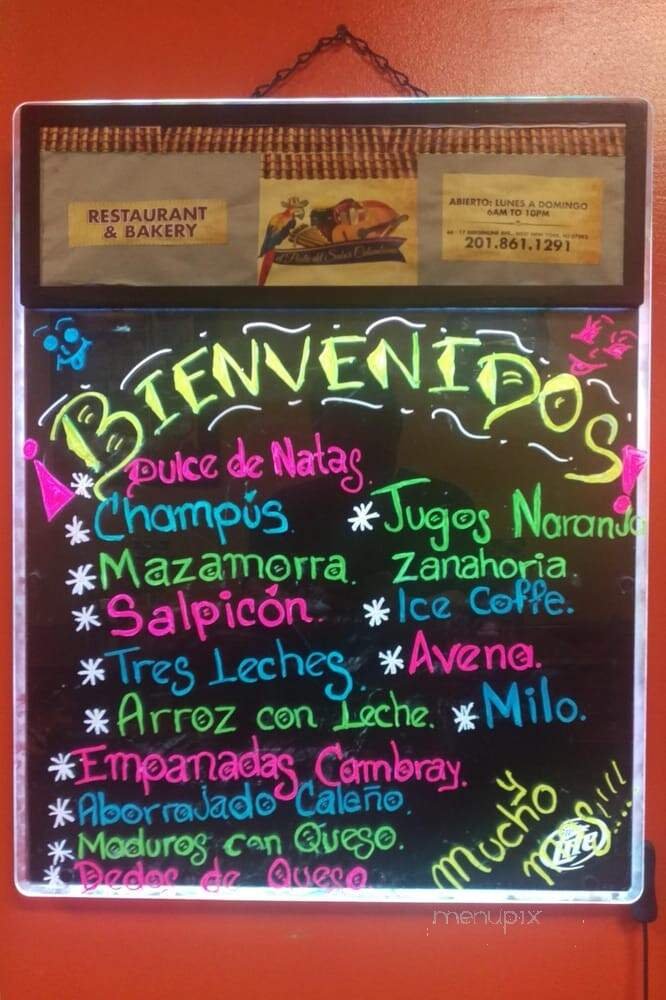 RESTAURANT
& BAKERY
ABIERTO: LUNES A DOMINGO
6AM TO 10PM
201.861.1291
¡BIENVENIDOS!
* Dulce de Natas
* Champús.
* Mazamorra.
* Salpicón.
* Tres Leches.
* Arroz con Leche.
* Empanadas Cambray.
* Aborrajado Caleño.
* Maduros con Queso.
* Dedos de Queso
* Jugos Naranja
Zanahoria
* Ice Coffe.
* Avena.
* Milo.
y
Mucho
Lite
menupix